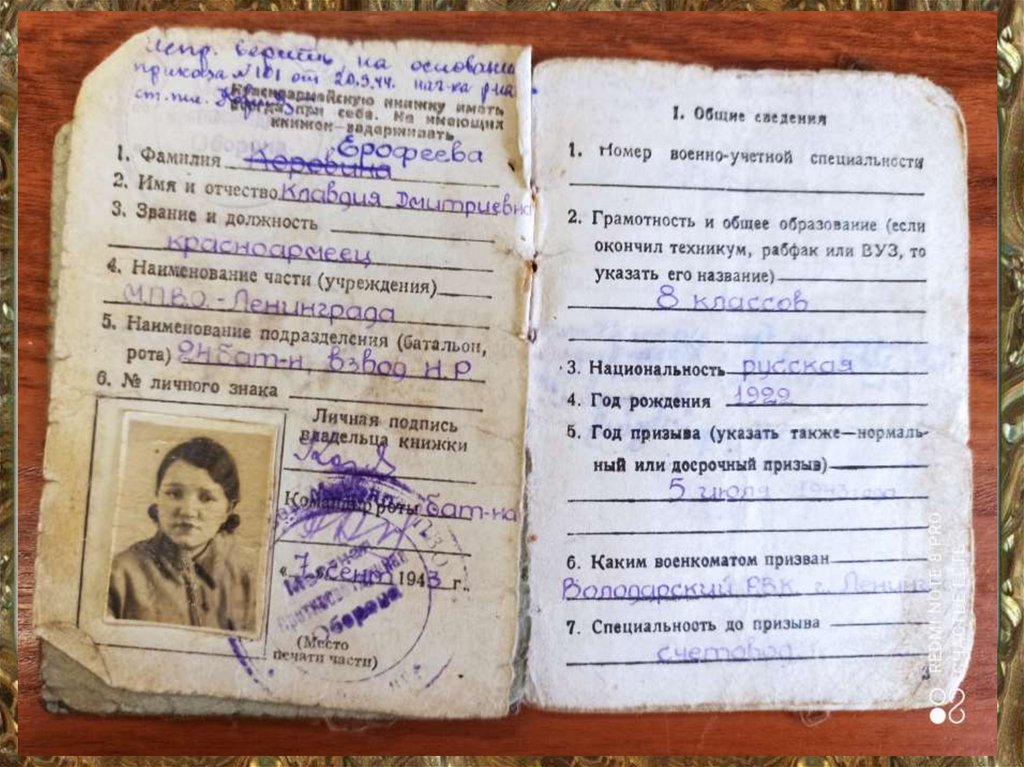 Испр. верить на основании
приказа № 101 от 20.9.44. нач-ка
ст.
Красноармейскую книжку иметь
всегда при себе. Не имеющих
книжек—задерживать
1. Фамилия Ерофеева
2. Имя и отчество Клавдия Дмитриевна
3. Звание и должность
красноармеец
4. Наименование части (учреждения)
М.П.В.О.-Ленинграда
5. Наименование подразделения (батальон,
рота) 24 бат-н, взвод Н.Р
6. № личного знака
Личная подпись
владельца книжки
Командир роты бат-на
„7„ сент 1943 г.
Оборона
(Место
печати части)
I. Общие сведения
1. Номер военно-учетной специальности
2. Грамотность и общее образование (если
окончил техникум, рабфак или ВУЗ, то
указать его название)
8 классов
3. Национальность русская
4. Год рождения 1922
5. Год призыва (указать также—нормаль-
ный или досрочный призыв)
5 июля 1943 года
6. Каким военкоматом призван
Володарский РВК г. Ленинг
7. Специальность до призыва
счетовод
REDMI NOTE 8 PRO